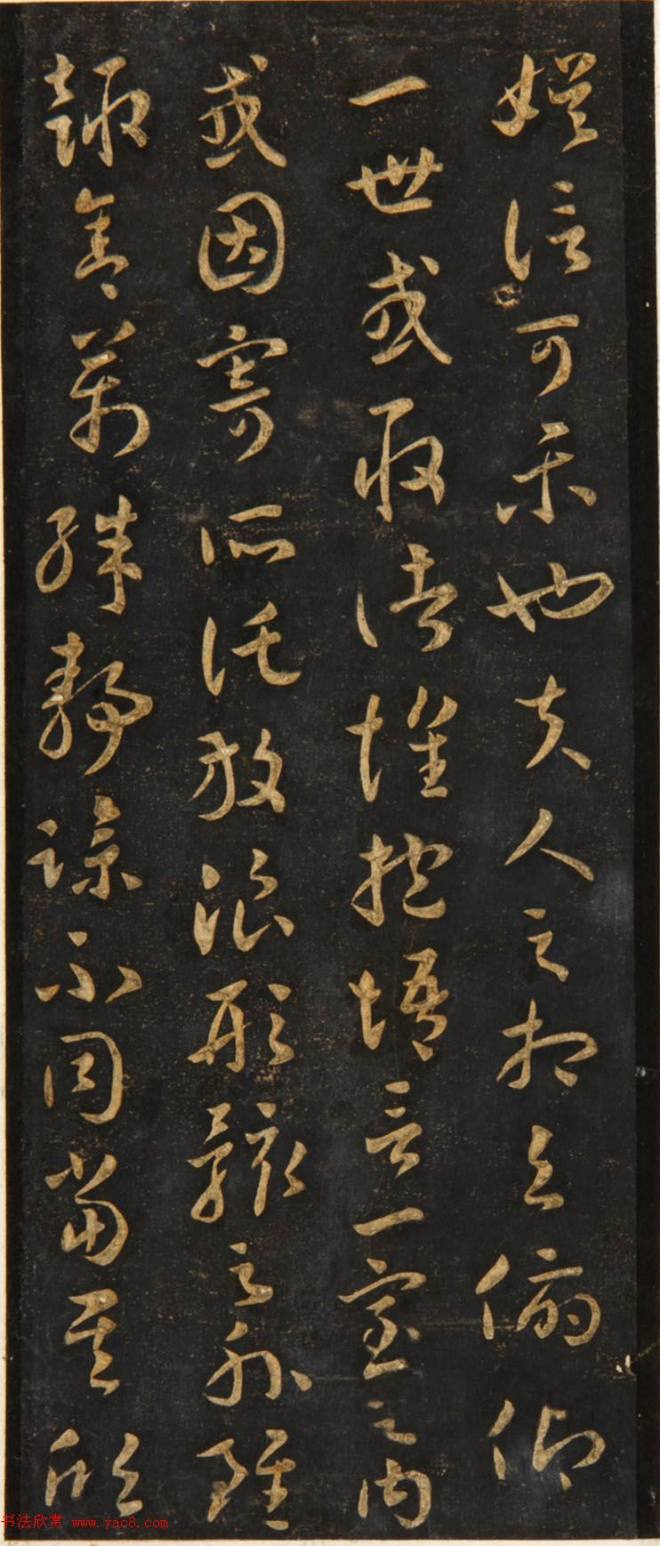 娱信可樂也夫人之相與俯仰
一世或取諸懷抱悟言一室之内
或因寄所託放浪形骸之外雖
趣舍萬殊静躁不同當其欣
书法欣赏 www.yac8.com